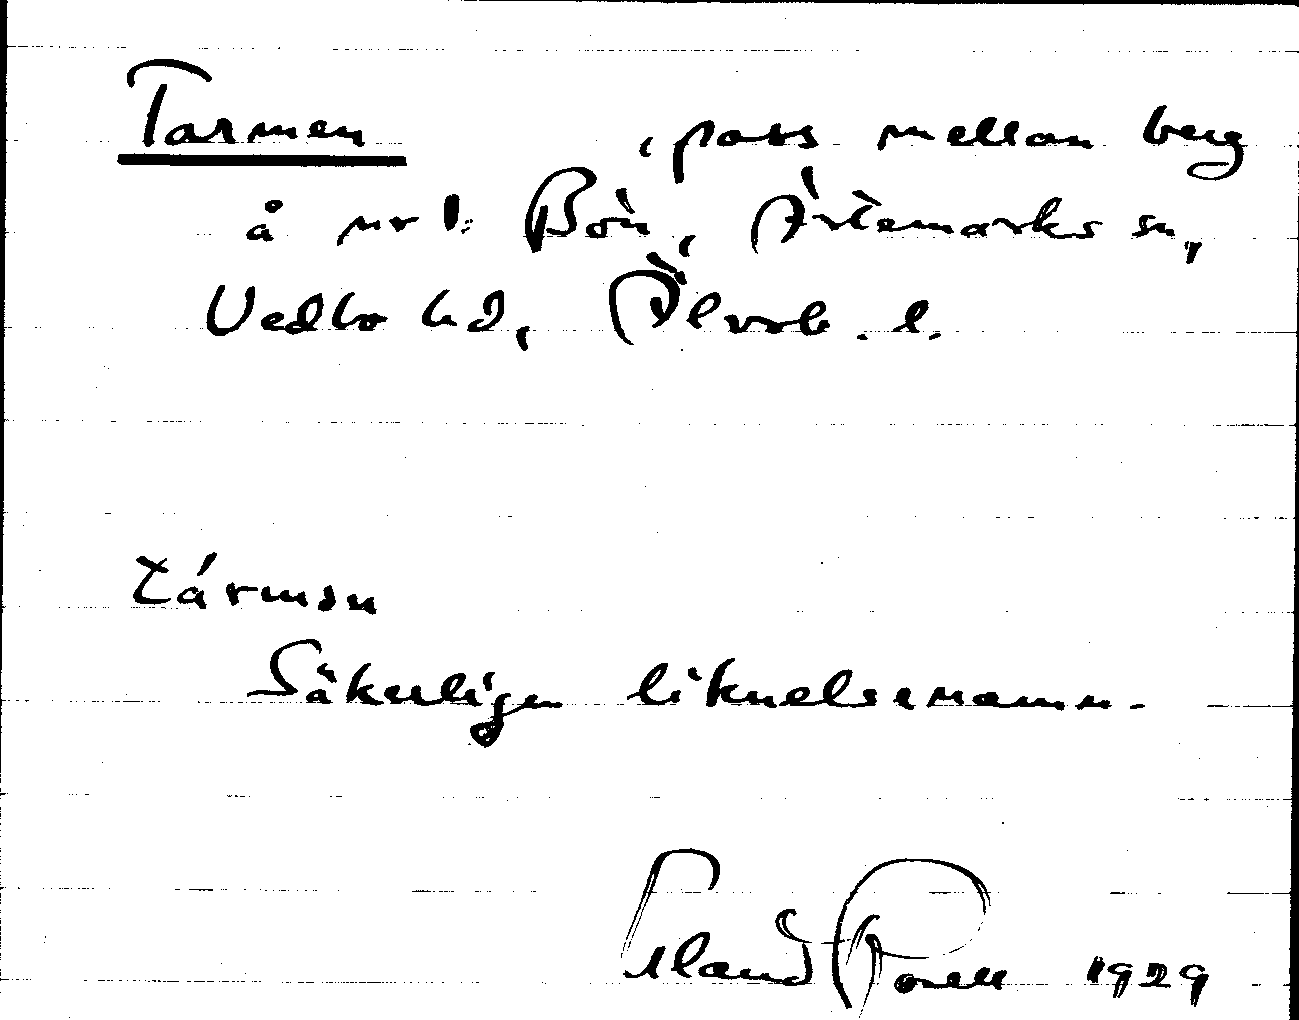 Tarmen , pass mellan berg
å nr 1: Bön, Ärtemarks sn,
Vedbo hd, Älvsb. l.
tármən
Säkerligen liknelsenamn.
Erland Rosell 1929